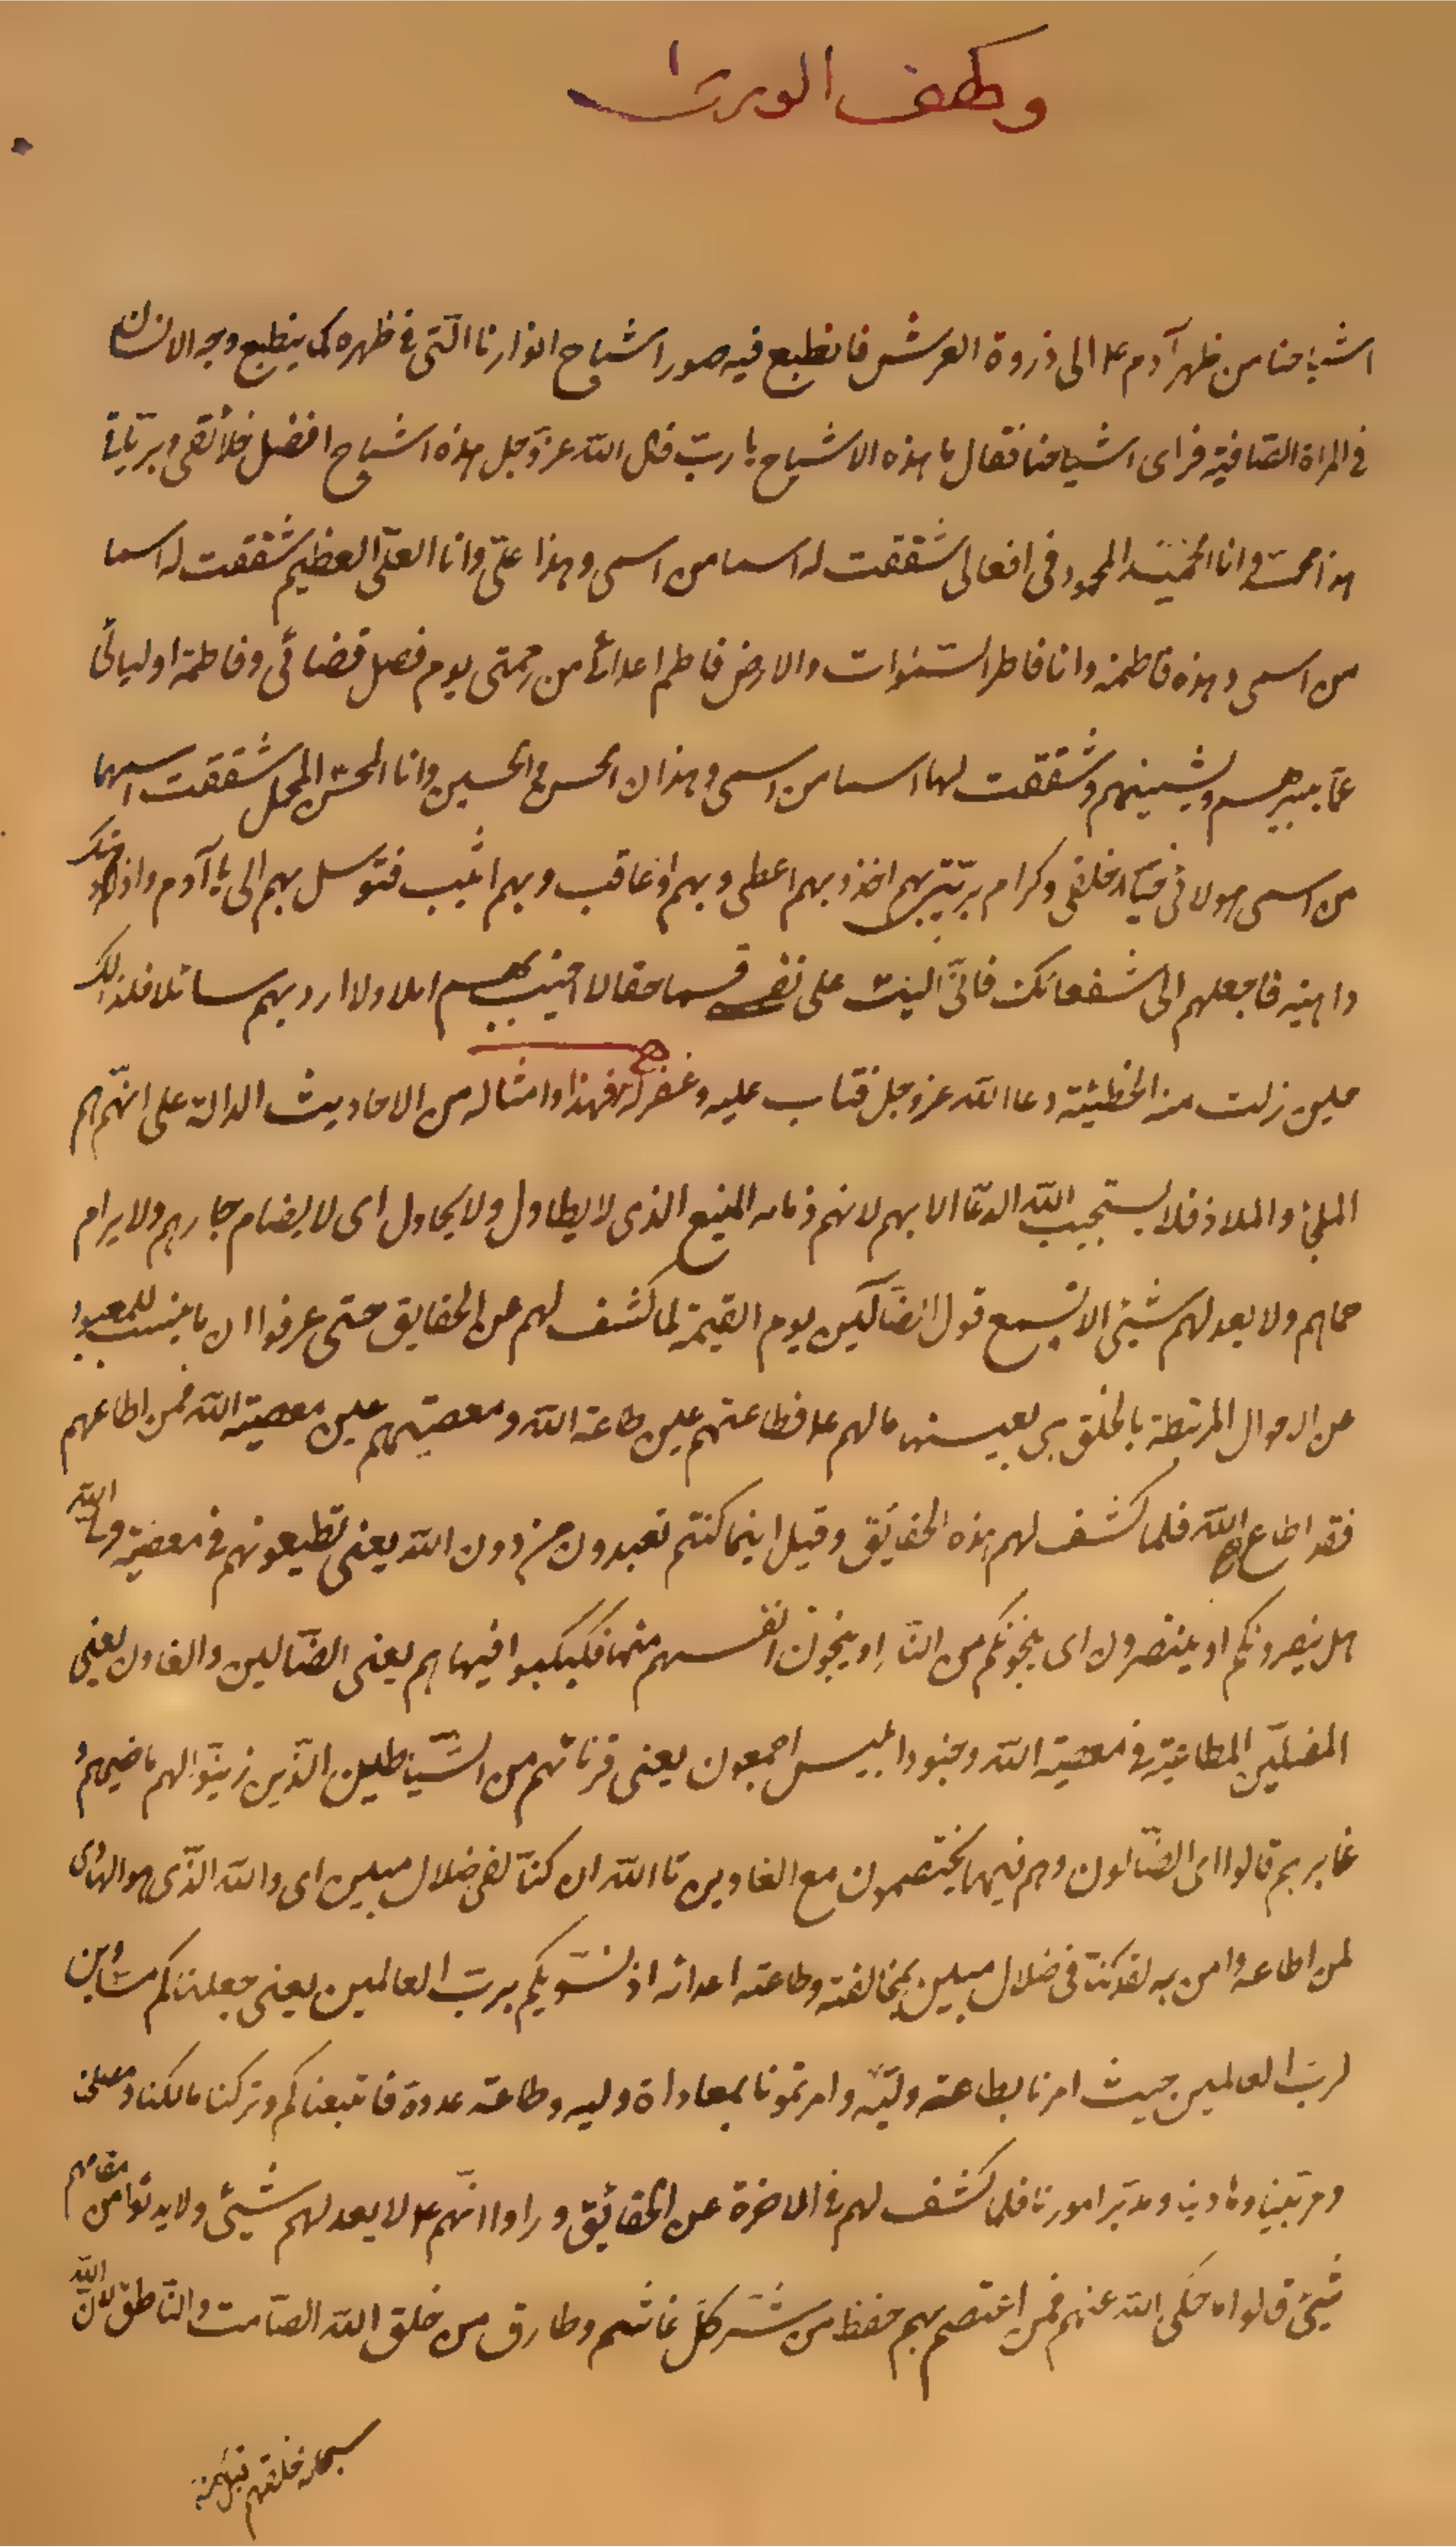 وكهف الورى
اشباحنا من ظهر آدم ع الى ذروة العرش فانطبع فيه صور اشباح انوارنا الّتى فى ظهره كما ينطبع وجه الانسان
فى المراة الصّافية فراى اشباحنا فقال ما هذه الاشباح يا ربّ فقال اللّه عزّوجل هذه اشباح افضل خلائقى وبريّاتى
هذا محمد وانا الحميد المحمود فى افعالى شققت له اسما من اسمى وهذا علىّ وانا العلّى العظيم شققت له اسما
من اسمى وهذه فاطمة وانا فاطر السّموات والارض فاطم اعدائى من رحمتى يوم فصل قضائى وفاطمة اوليائى
عمّا يبيرهم ويشينهم وشققت لها اسما من اسمى وهذان الحسن والحسين وانا المحسن المجمل شققت اسمهما
من اسمى هولائى خيار خلقى وكرام بريّتى بهم اخذ وبهم اعطى وبهم اعاقب وبهم اثيب فتوسل بهم الى يا آدم واذا دهتك
داهية فاجعلهم الىّ شفعائك فانّى اليت على نفسى قسما حقا لا اخيب بهم املا ولا ارد بهم سائلا فلذلك
حين زلت منه الخطيئة دعا اللّه عزوجل فتاب عليه وغفر له فهذا وامثاله من الاحاديث الدالة على انّهم هم
الملجئ والملاذ فلا يستجيب اللّه الدعّا الا بهم لانهم ذمامه المنيع الذى لا يطاول ولا يحاول اى لا يضام جارهم ولا يرام
حماهم ولا يعدلهم شيئ الا تسمع قول الضّالّين يوم القيمة لما كشف لهم عن الحقايق حتى عرفوا ان ما ينسب للمعبود
من الاحوال المرتبطة بالخلق هى بعينها مالهم ع فطاعتهم عين طاعة اللّه ومعصيتهم عين معصية اللّه فمن اطاعهم
فقد اطاع اللّه فلما كشف لهم هذه الحقايق وقيل اينما كنتم تعبدون من دون اللّه يعنى تطيعونهم فى معصية ولى اللّه
هل ينصرونكم او ينتصرون اى ينجونكم من النّار او ينجون انفسهم منها فكبكبوا فيها هم يعنى الضّالين والغاون يعنى
المضلّين المطاعين فى معصية اللّه وجنود ابليس اجمعون يعنى قرنائهم من الشّياطين الّذين زيّنوا لهم ماضيهم و
غابرهم قالوا اى الضّالون وهم فيها يختصمون مع الغاوين تااللّه ان كنّا لفى ضلال مبين اى واللّه الذّى هو الهادى
لمن اطاعه وامن به لقد كنّا فى ضلال مبين بمخالفته وطاعته اعدائه اذ نسّويكم بربّ العالمين يعنى جعلناكم مساوين
لربّ العالمين حيث امرنا بطاعته وليّه وامرتمونا بمعاداة وليه وطاعته عدوه فاتبعناكم وتركنا مالكنا ومعلمنا
ومربّينا وهادينا ومدبّر امورنا فلما كشف لهم فى الاخرة عن الحقائق وراوا انّهم ع لا يعدلهم شيئ ولا يدنوا من مقامهم
شيئ قالوا ما حكى اللّه عنهم فمن اعتصم بهم حفظ من شر كلّ غاشم وطارق من خلق اللّه الصّامت والنّاطق لانّ اللّه
سبحانه خلقهم